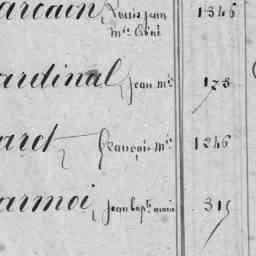 arcain, Louis jean 1346
mie
ardinal, jean mie 173
arot, françois mie 1246
armoi, jean bapte marie 315